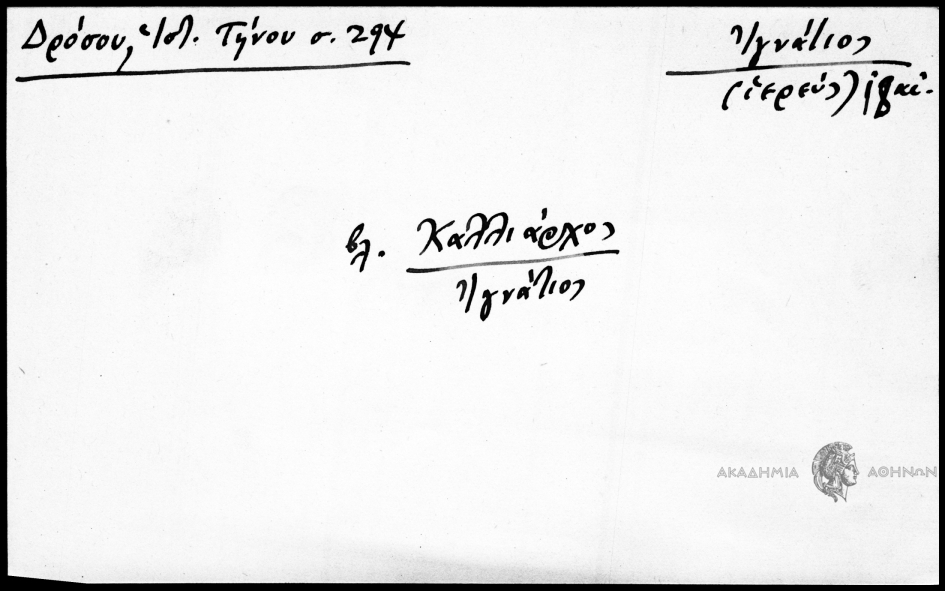 Δρόσου, Ἱστ. Τήνου σ. 294
Ἰγνάτιος
(ἱερεύς)
βλ. Καλλίαρχος
Ἰγνάτιος
ΑΚΑΔΗΜΙΑ ΑΘΗΝΩΝ